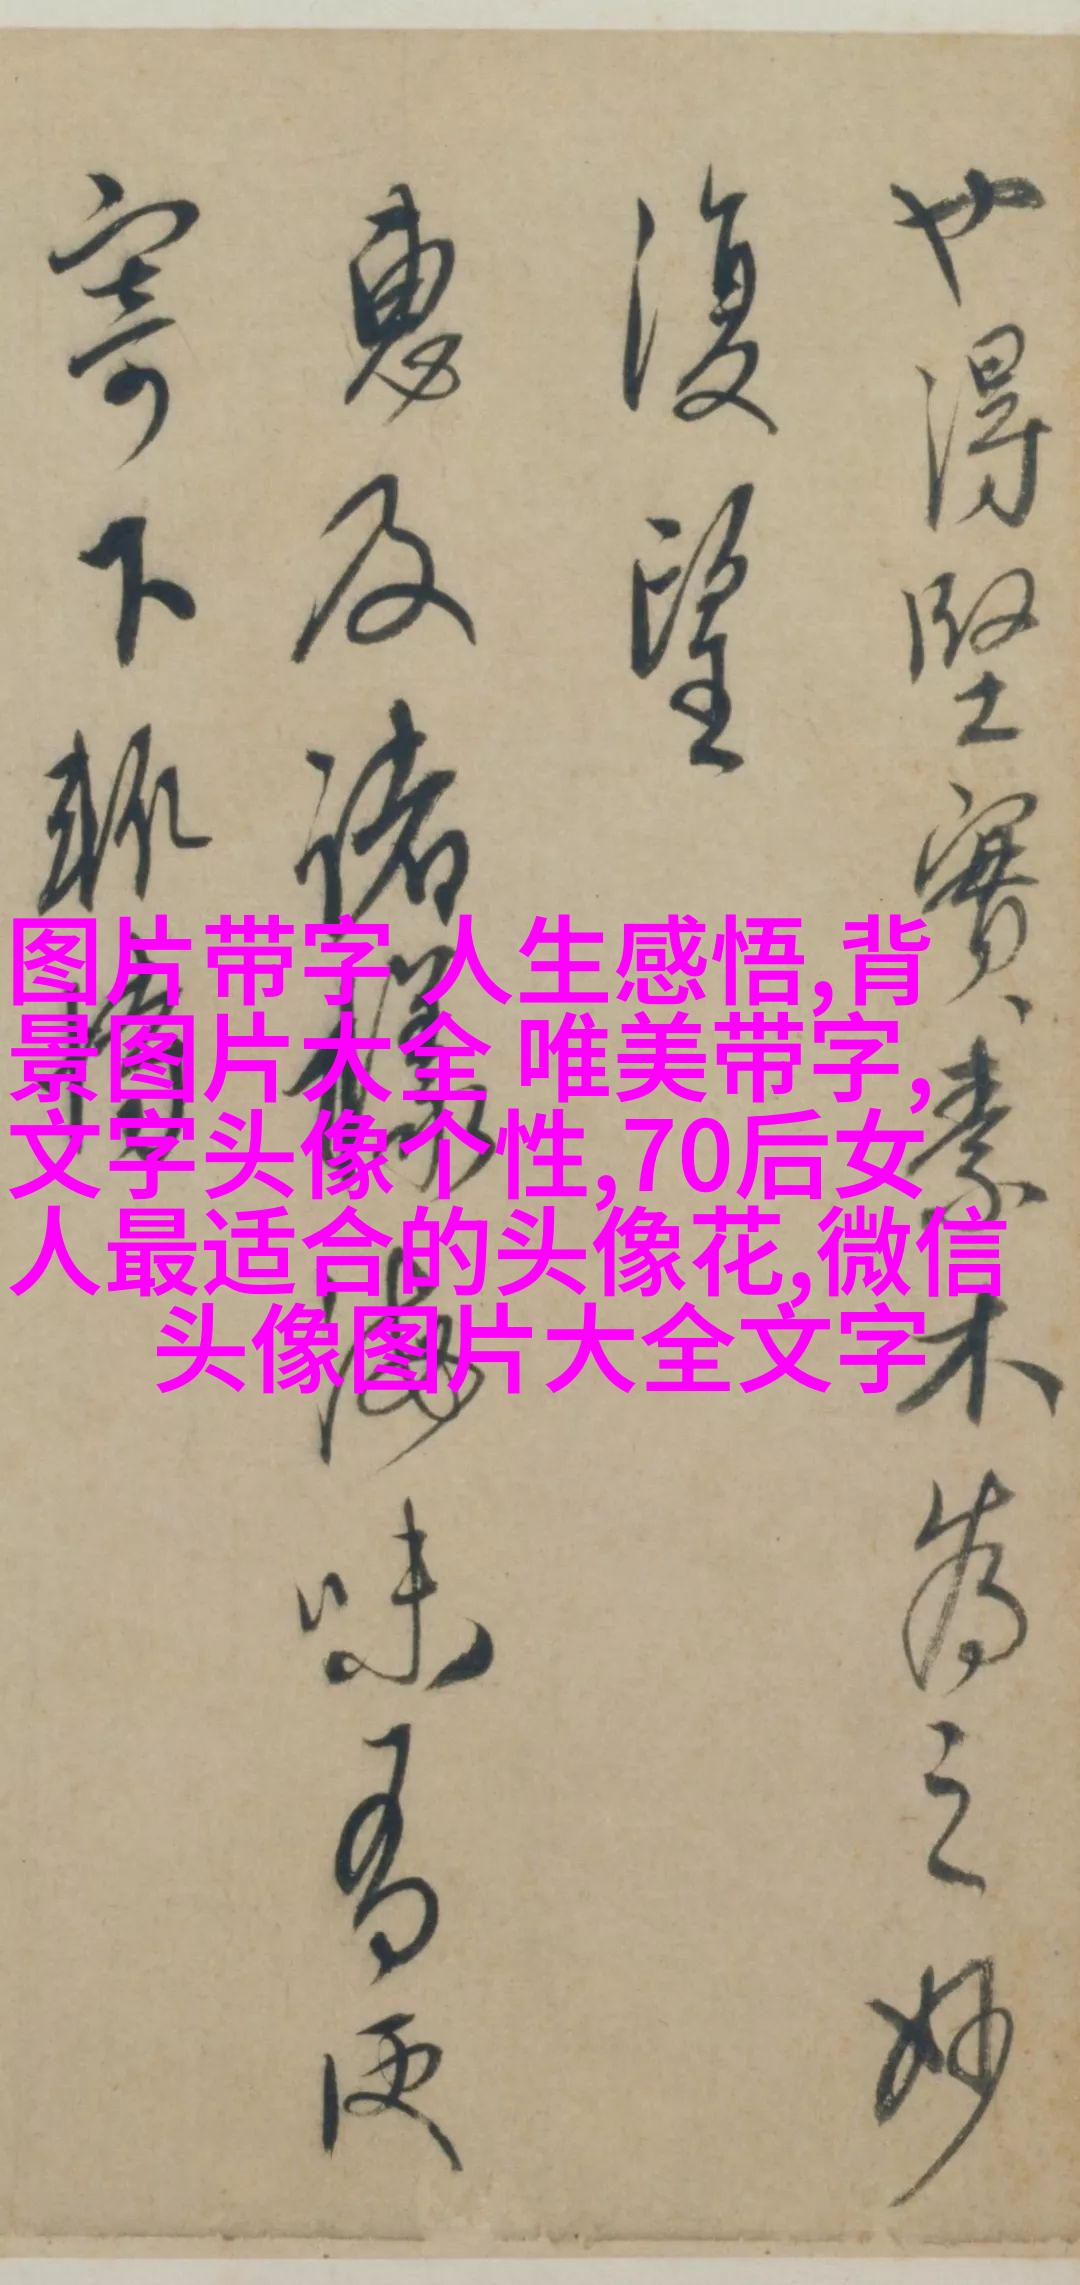 也得堅實素木為之妙
復望
惠及諸樣海味有便
寄下輒
图片带字 人生感悟,背
景图片大全 唯美带字,
文字头像个性,70后女
人最适合的头像花,微信
头像图片大全文字